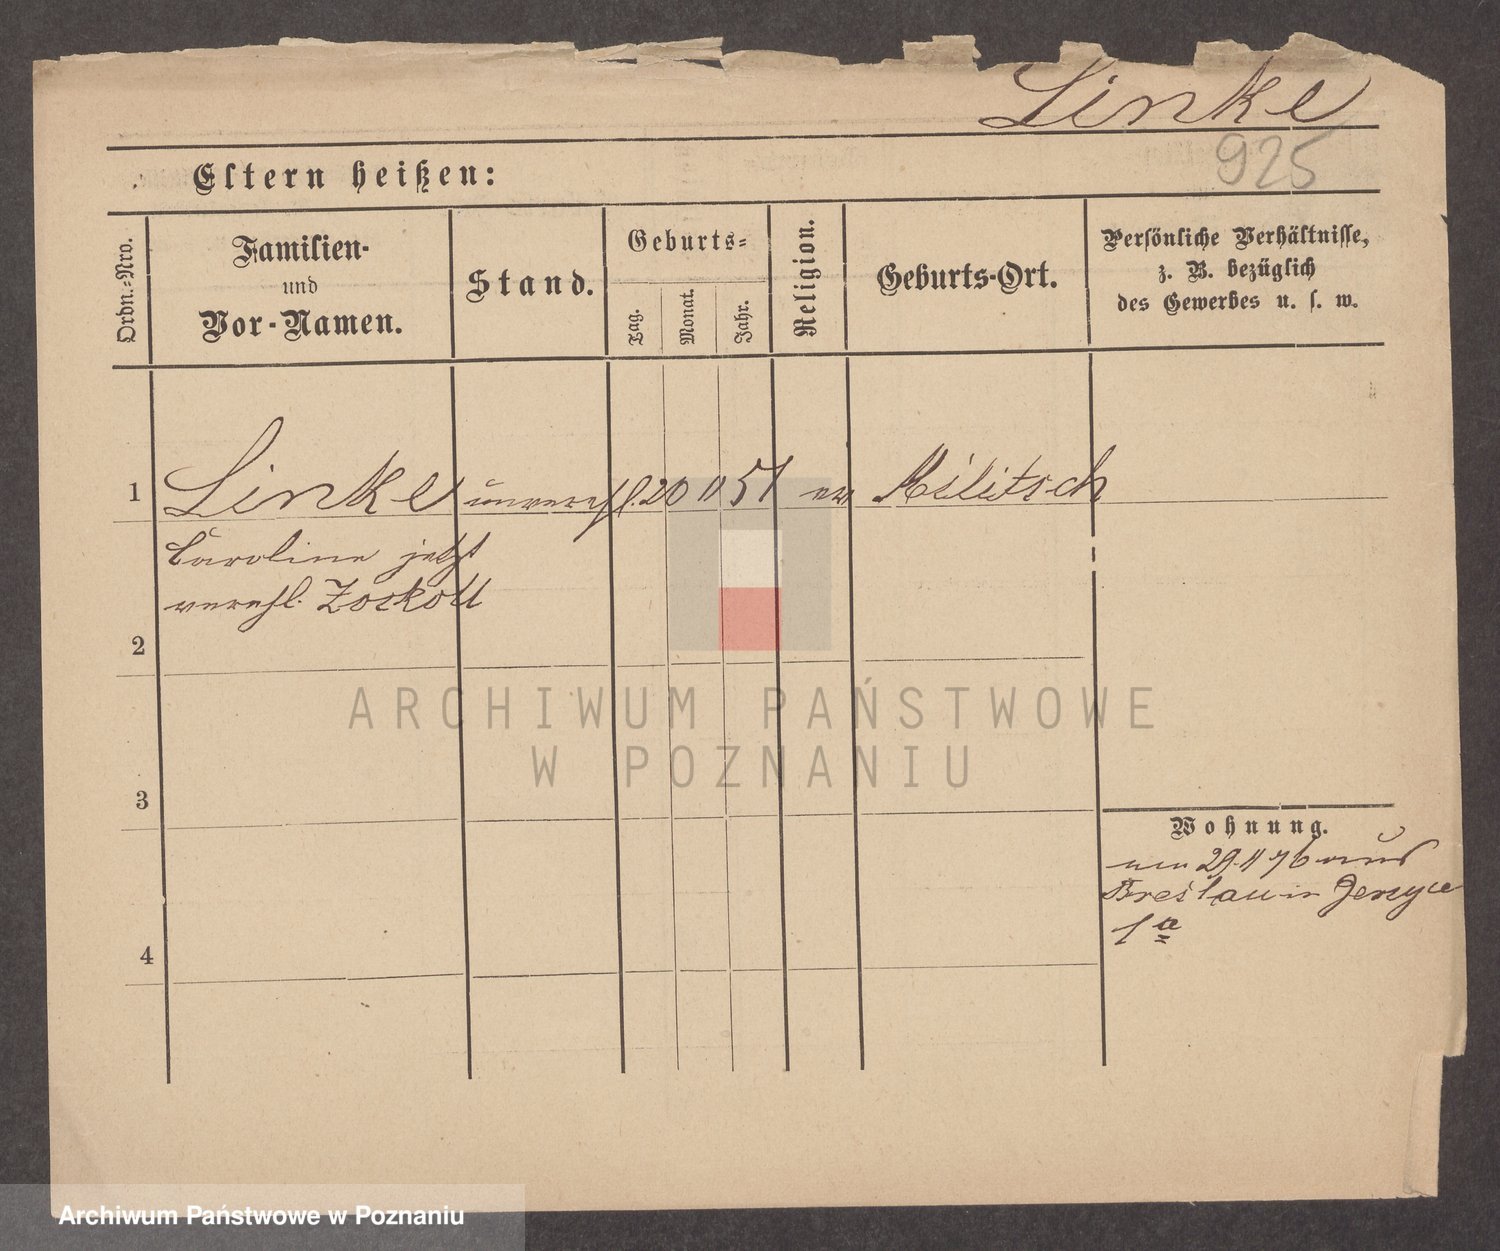 Linke
925
Eltern heißen:
Ordn.-Nro.
Familien-
und
Vor-Namen.
Stand.
Geburts-
Tag.
Monat.
Jahr.
Religion.
Geburts-Ort.
Persönliche Verhältnisse,
z. B. bezüglich
des Gewerbes u. s. w.
1 Linke unverehl. 20 11 51 ev Militsch
Caroline jetzt
verehl. Zockoll
2
3
4
Wohnung.
am 29. 11 76 aus
Breslau in Jerzyce
1a
ARCHIWUM PAŃSTWOWE
W POZNANIU
Archiwum Państwowe w Poznaniu